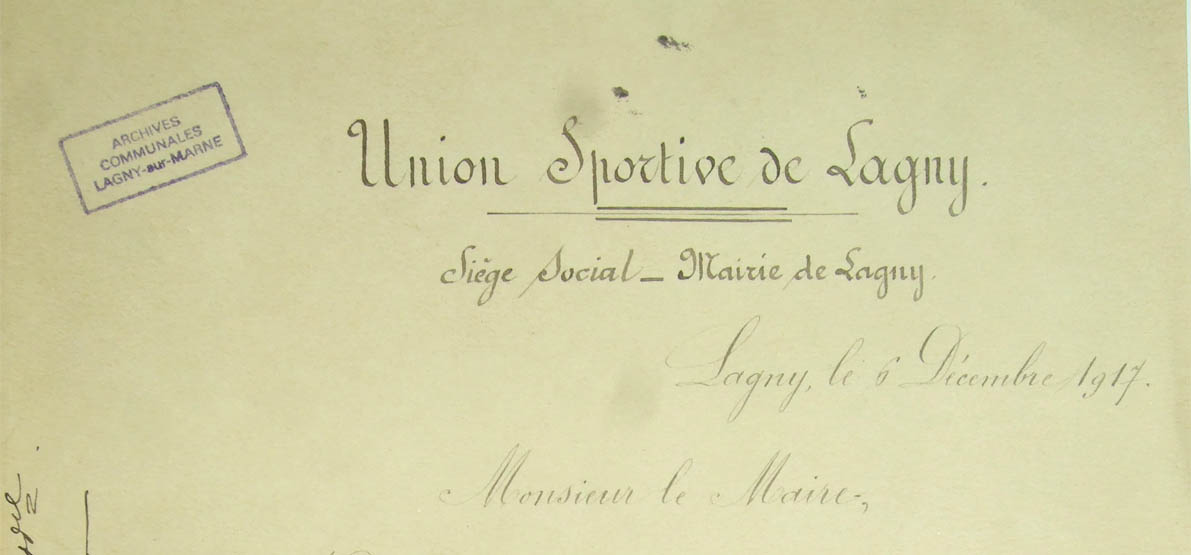 ARCHIVES
COMMUNALES
LAGNY-sur-MARNE
Union Sportive de Lagny.
Siège Social - Mairie de Lagny.
Lagny, le 6 Décembre 1917.
Monsieur le Maire,